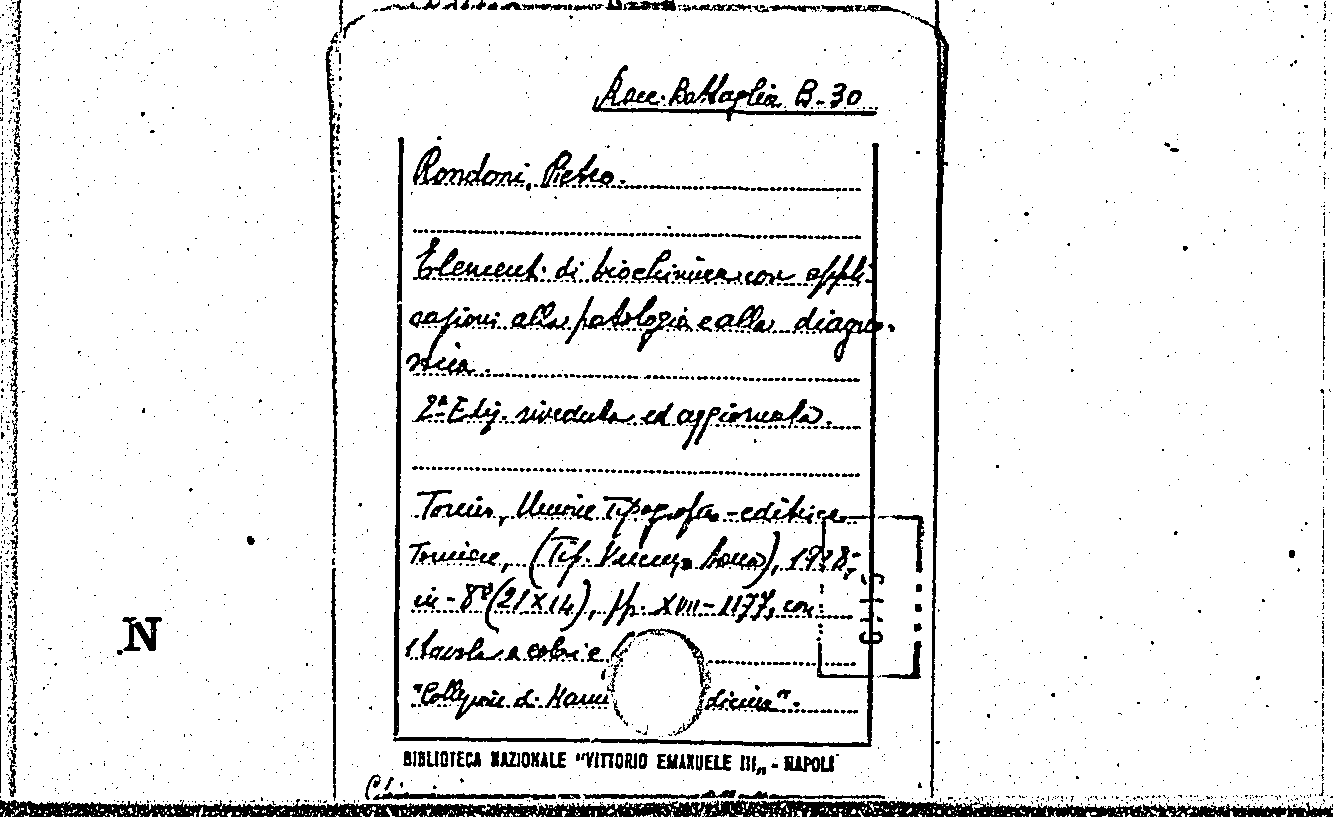 Racc. Battaglia B-30
Rondoni, Pietro.
Elementi di biochimica con appli-
cazioni alla patologia e alla diagno-
stica.
2ª Ediz. riveduta ed aggiornata.
Torino, Unione Tipografico-editrice
Torinese, (Tip. Vincenzo Bona), 1928,
in-8º (21x14), pp. XVIII-1177, con
1 tavola a colori e
"Collezione di Manu dicina".
BIBLIOTECA NAZIONALE "VITTORIO EMANUELE III„ - NAPOLI
N